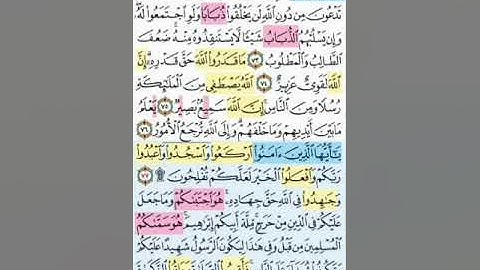 تَدْعُونَ مِن دُونِ اللَّهِ لَن يَخْلُقُوا ذُبَابًا وَلَوِ اجْتَمَعُوا لَهُ
وَإِن يَسْلُبْهُمُ الذُّبَابُ شَيْئًا لَّا يَسْتَنقِذُوهُ مِنْهُ ضَعُفَ
الطَّالِبُ وَالْمَطْلُوبُ ٧٣ مَا قَدَرُوا اللَّهَ حَقَّ قَدْرِهِ إِنَّ
اللَّهَ لَقَوِيٌّ عَزِيزٌ ٧٤ اللَّهُ يَصْطَفِي مِنَ الْمَلَائِكَةِ
رُسُلًا وَمِنَ النَّاسِ إِنَّ اللَّهَ سَمِيعٌ بَصِيرٌ ٧٥ يَعْلَمُ
مَا بَيْنَ أَيْدِيهِمْ وَمَا خَلْفَهُمْ وَإِلَى اللَّهِ تُرْجَعُ الْأُمُورُ ٧٦
يَا أَيُّهَا الَّذِينَ آمَنُوا ارْكَعُوا وَاسْجُدُوا وَاعْبُدُوا
رَبَّكُمْ وَافْعَلُوا الْخَيْرَ لَعَلَّكُمْ تُفْلِحُونَ ۩ ٧٧
وَجَاهِدُوا فِي اللَّهِ حَقَّ جِهَادِهِ هُوَ اجْتَبَاكُمْ وَمَا جَعَلَ
عَلَيْكُمْ فِي الدِّينِ مِنْ حَرَجٍ مِّلَّةَ أَبِيكُمْ إِبْرَاهِيمَ هُوَ سَمَّاكُمُ
الْمُسْلِمِينَ مِن قَبْلُ وَفِي هَذَا لِيَكُونَ الرَّسُولُ شَهِيدًا عَلَيْكُمْ